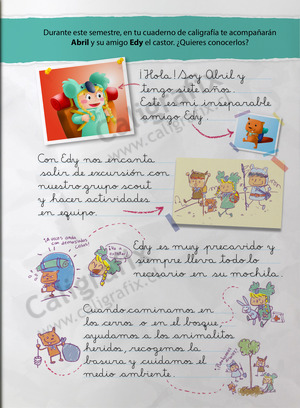 Durante este semestre, en tu cuaderno de caligrafía te acompañarán
Abril y su amigo Edy el castor. ¿Quieres conocerlos?
¡Hola! Soy Abril y
tengo siete años.
Este es mi inseparable
amigo Edy.
Con Edy nos encanta
salir de excursión con
nuestro grupo scout
y hacer actividades
en equipo.
Edy es muy precavido y
siempre lleva todo lo
necesario en su mochila.
Cuando caminamos en
los cerros o en el bosque,
ayudamos a los animalitos
heridos, recogemos la
basura y cuidamos el
medio ambiente.
Caligrafix
www.caligrafix.cl